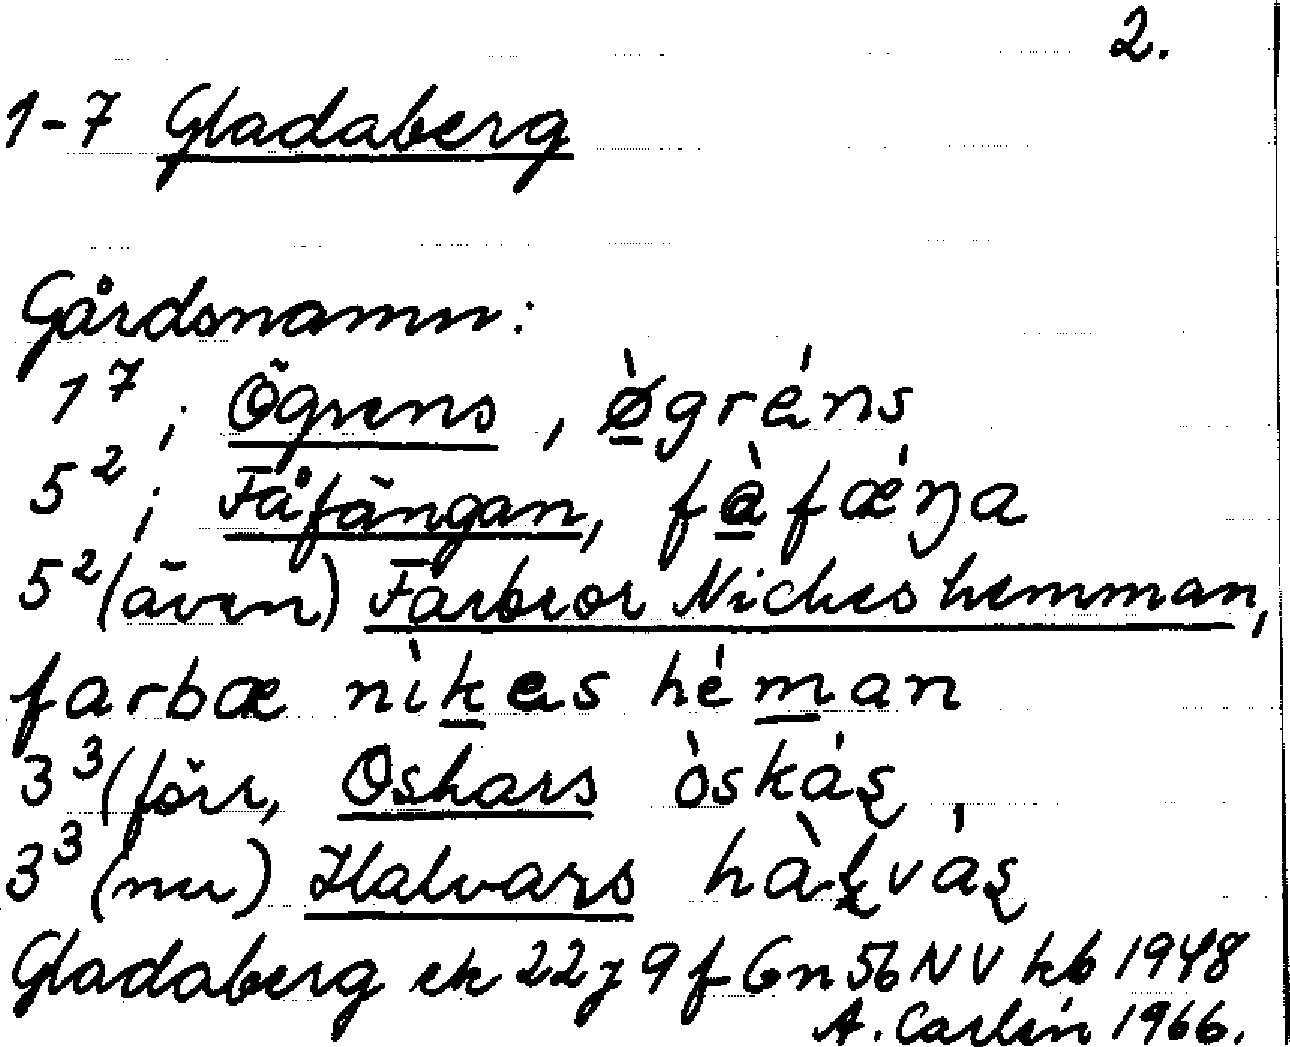 2.
1-7 Gladaberg
Gårdsnamn:
1⁷; Ögrens, ø̀gréns
5²; Fåfängan, fàfǽŋa
5² (även) Farbror Nickes hemman,
farbæ nìkes héman
3³ (förr, Oskars òskáʂ
3³ (nu) Halvars hàɭváʂ
Gladaberg ek 22j9f Gn 56 NV kb 1948
A. Carlin 1966.